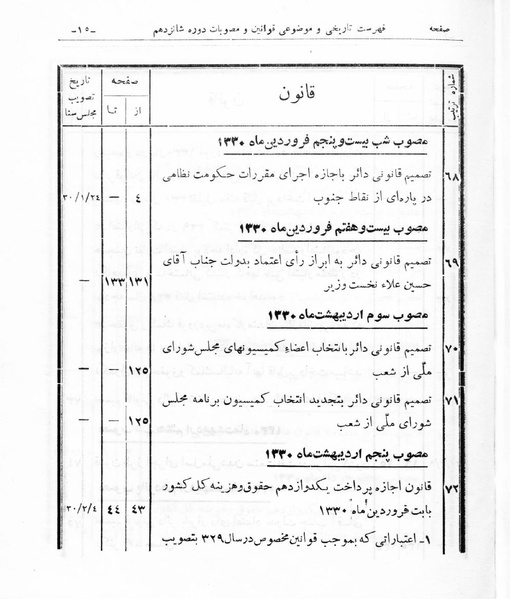 صفحه فهرست تاریخی و موضوعی قوانین و مصوبات دوره شانزدهم -۱۵-
شماره ترتیب
قانون
صفحه
از تا
تاریخ
تصویب
مجلس سنا
مصوب شب بیست و پنجم فروردین ماه ۱۳۳۰
۶۸ تصمیم قانونی دائر باجازه اجرای مقررات حکومت نظامی
در پاره‌ای از نقاط جنوب ۴ — ۳۰/۱/۲۴
مصوب بیست و هفتم فروردین ماه ۱۳۳۰
۶۹ تصمیم قانونی دائر به ابراز رأی اعتماد بدولت جناب آقای
حسین علاء نخست وزیر ۱۳۱ ۱۳۳ —
مصوب سوم اردیبهشت ماه ۱۳۳۰
۷۰ تصمیم قانونی دائر بانتخاب اعضاء کمیسیونهای مجلس شورای
ملّی از شعب ۱۲۵ — —
۷۱ تصمیم قانونی دائر بتجدید انتخاب کمیسیون برنامه مجلس
شورای ملّی از شعب ۱۲۵ — —
مصوب پنجم اردیبهشت ماه ۱۳۳۰
۷۲ قانون اجازه پرداخت یکدوازدهم حقوق و هزینه کل کشور
بابت فروردین ماه ۱۳۳۰ ۴۳ ۴۴ ۳۰/۲/۴
۱ـ اعتباراتی که بموجب قوانین مخصوص در سال ۳۲۹ بتصویب